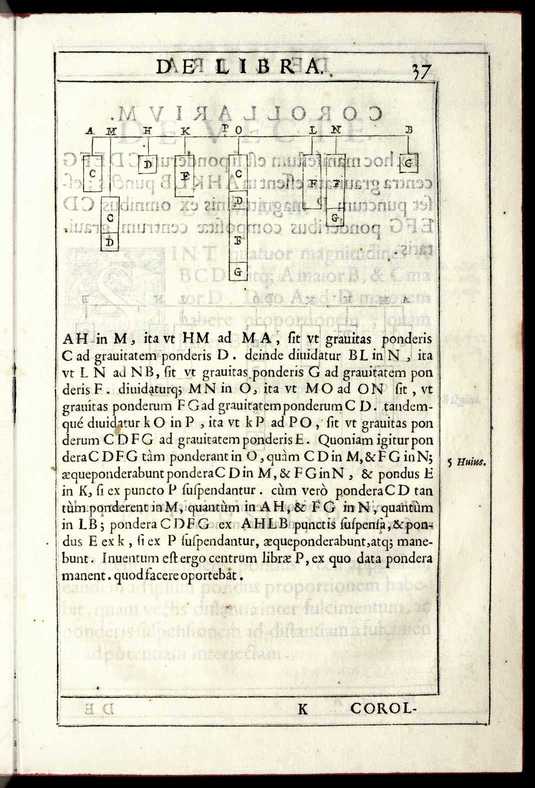 DE LIBRA.
37
A M H K P O L N B
C D F C F F G
C D G
D D
F
G
AH in M, ita vt HM ad MA, ſit vt grauitas ponderis
C ad grauitatem ponderis D. deinde diuidatur BL in N, ita
vt LN ad NB, ſit vt grauitas ponderis G ad grauitatem pon
deris F. diuidaturq; MN in O, ita vt MO ad ON ſit, vt
grauitas ponderum FG ad grauitatem ponderum CD. tandem-
qué diuidatur kO in P, ita vt kP ad PO, ſit vt grauitas pon
derum CDFG ad grauitatem ponderis E. Quoniam igitur pon
dera CDFG tàm ponderant in O, quàm CD in M, & FG in N;
æqueponderabunt pondera CD in M, & FG in N, & pondus E
in K, ſi ex puncto P ſuſpendantur. cùm verò pondera CD tan
tùm ponderent in M, quantùm in AH, & FG in N, quantùm
in LB; pondera CDFG ex AHLB punctis ſuſpenſa, & pon-
dus E ex k, ſi ex P ſuſpendantur, æqueponderabunt, atq; mane-
bunt. Inuentum eſt ergo centrum libræ P, ex quo data pondera
manent. quod facere oportebàt.
5 Huius.
K COROL-